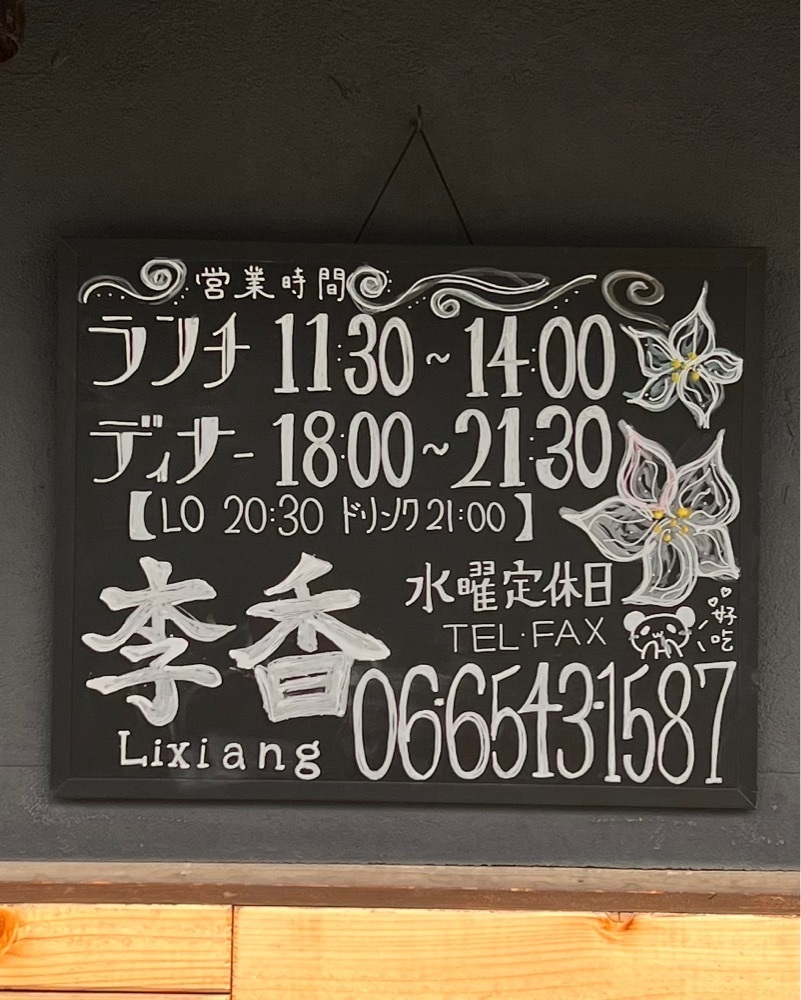 営業時間
ランチ 11:30~14:00
ディナー 18:00~21:30
【LO 20:30 ドリンク21:00】
水曜定休日
TEL・FAX
好吃
李香
Lixiang
06-6543-1587